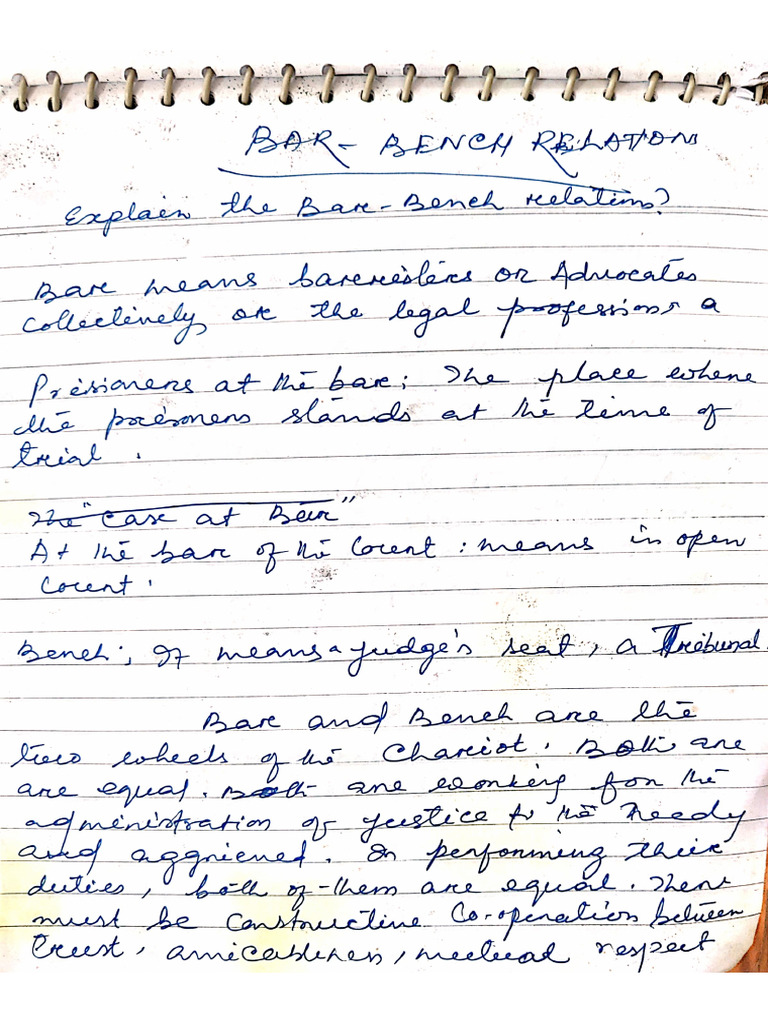 BAR - BENCH RELATION
Explain the Bar-Bench relations?
Bar means barristers or Advocates
collectively or the legal professions a
Prisioners at the bar; The place where
the prisoners stands at the time of
trial.
The "Case at Bar"
At the bar of the Court : means in open
Court.
Bench; It means a judge's seat, a Tribunal.
Bar and Bench are the
two wheels of the Chariot. Both are
are equal. Both are working for the
administration of justice to the Needy
and aggrieved. In performing their
duties, both of them are equal. There
must be constructive Co-operation between
trust, amicableness, mutual respect